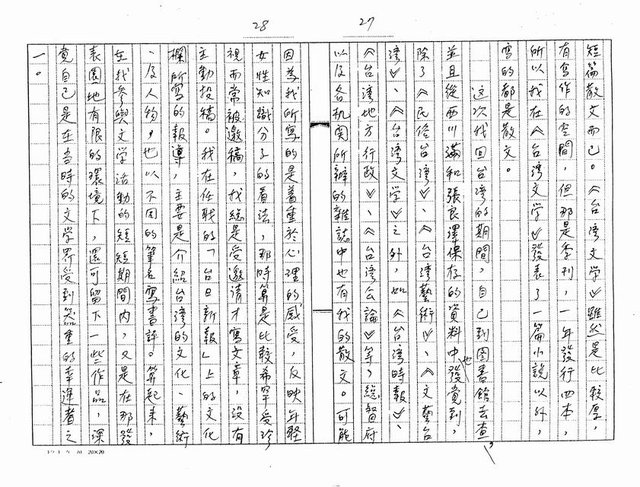 27
短篇散文而已。《台湾文学》雖然是比較厚,
有寫作的空間,但那是季刊,一年發行四本,
所以我在《台湾文学》發表了一篇小說以外,
寫的都是散文。
這次我回台灣的期間,自己到圖書館去查,
並且從西川滿和張良澤保存的資料中也發覺到,
除了《民俗台湾》、《台湾藝術》、《文藝台
湾》、《台湾文学》之外,如《台湾時報》、
《台湾地方行政》、《台湾公論》等,總督府
以及各机関所辦的雜誌中也有我的散文。可能
28
因為我所寫的是著重於心理的感受,反映年輕
女性知識分子的看法,那時算是比較希罕受珍
視而常被邀稿,我總是受邀請才寫文章,沒有
主動投稿。我在任職的「台日新報」上的文化
欄所寫的報導,主要是介紹台湾的文化、藝術
、及人物,也以不同的筆名寫書評。算起來,
在我參與文学活動的短短期間內,又是在那發
表園地有限的環境下,還可留下一些作品,深
覺自己是在當時的文学界受到器重的幸運者之
一。
20X20